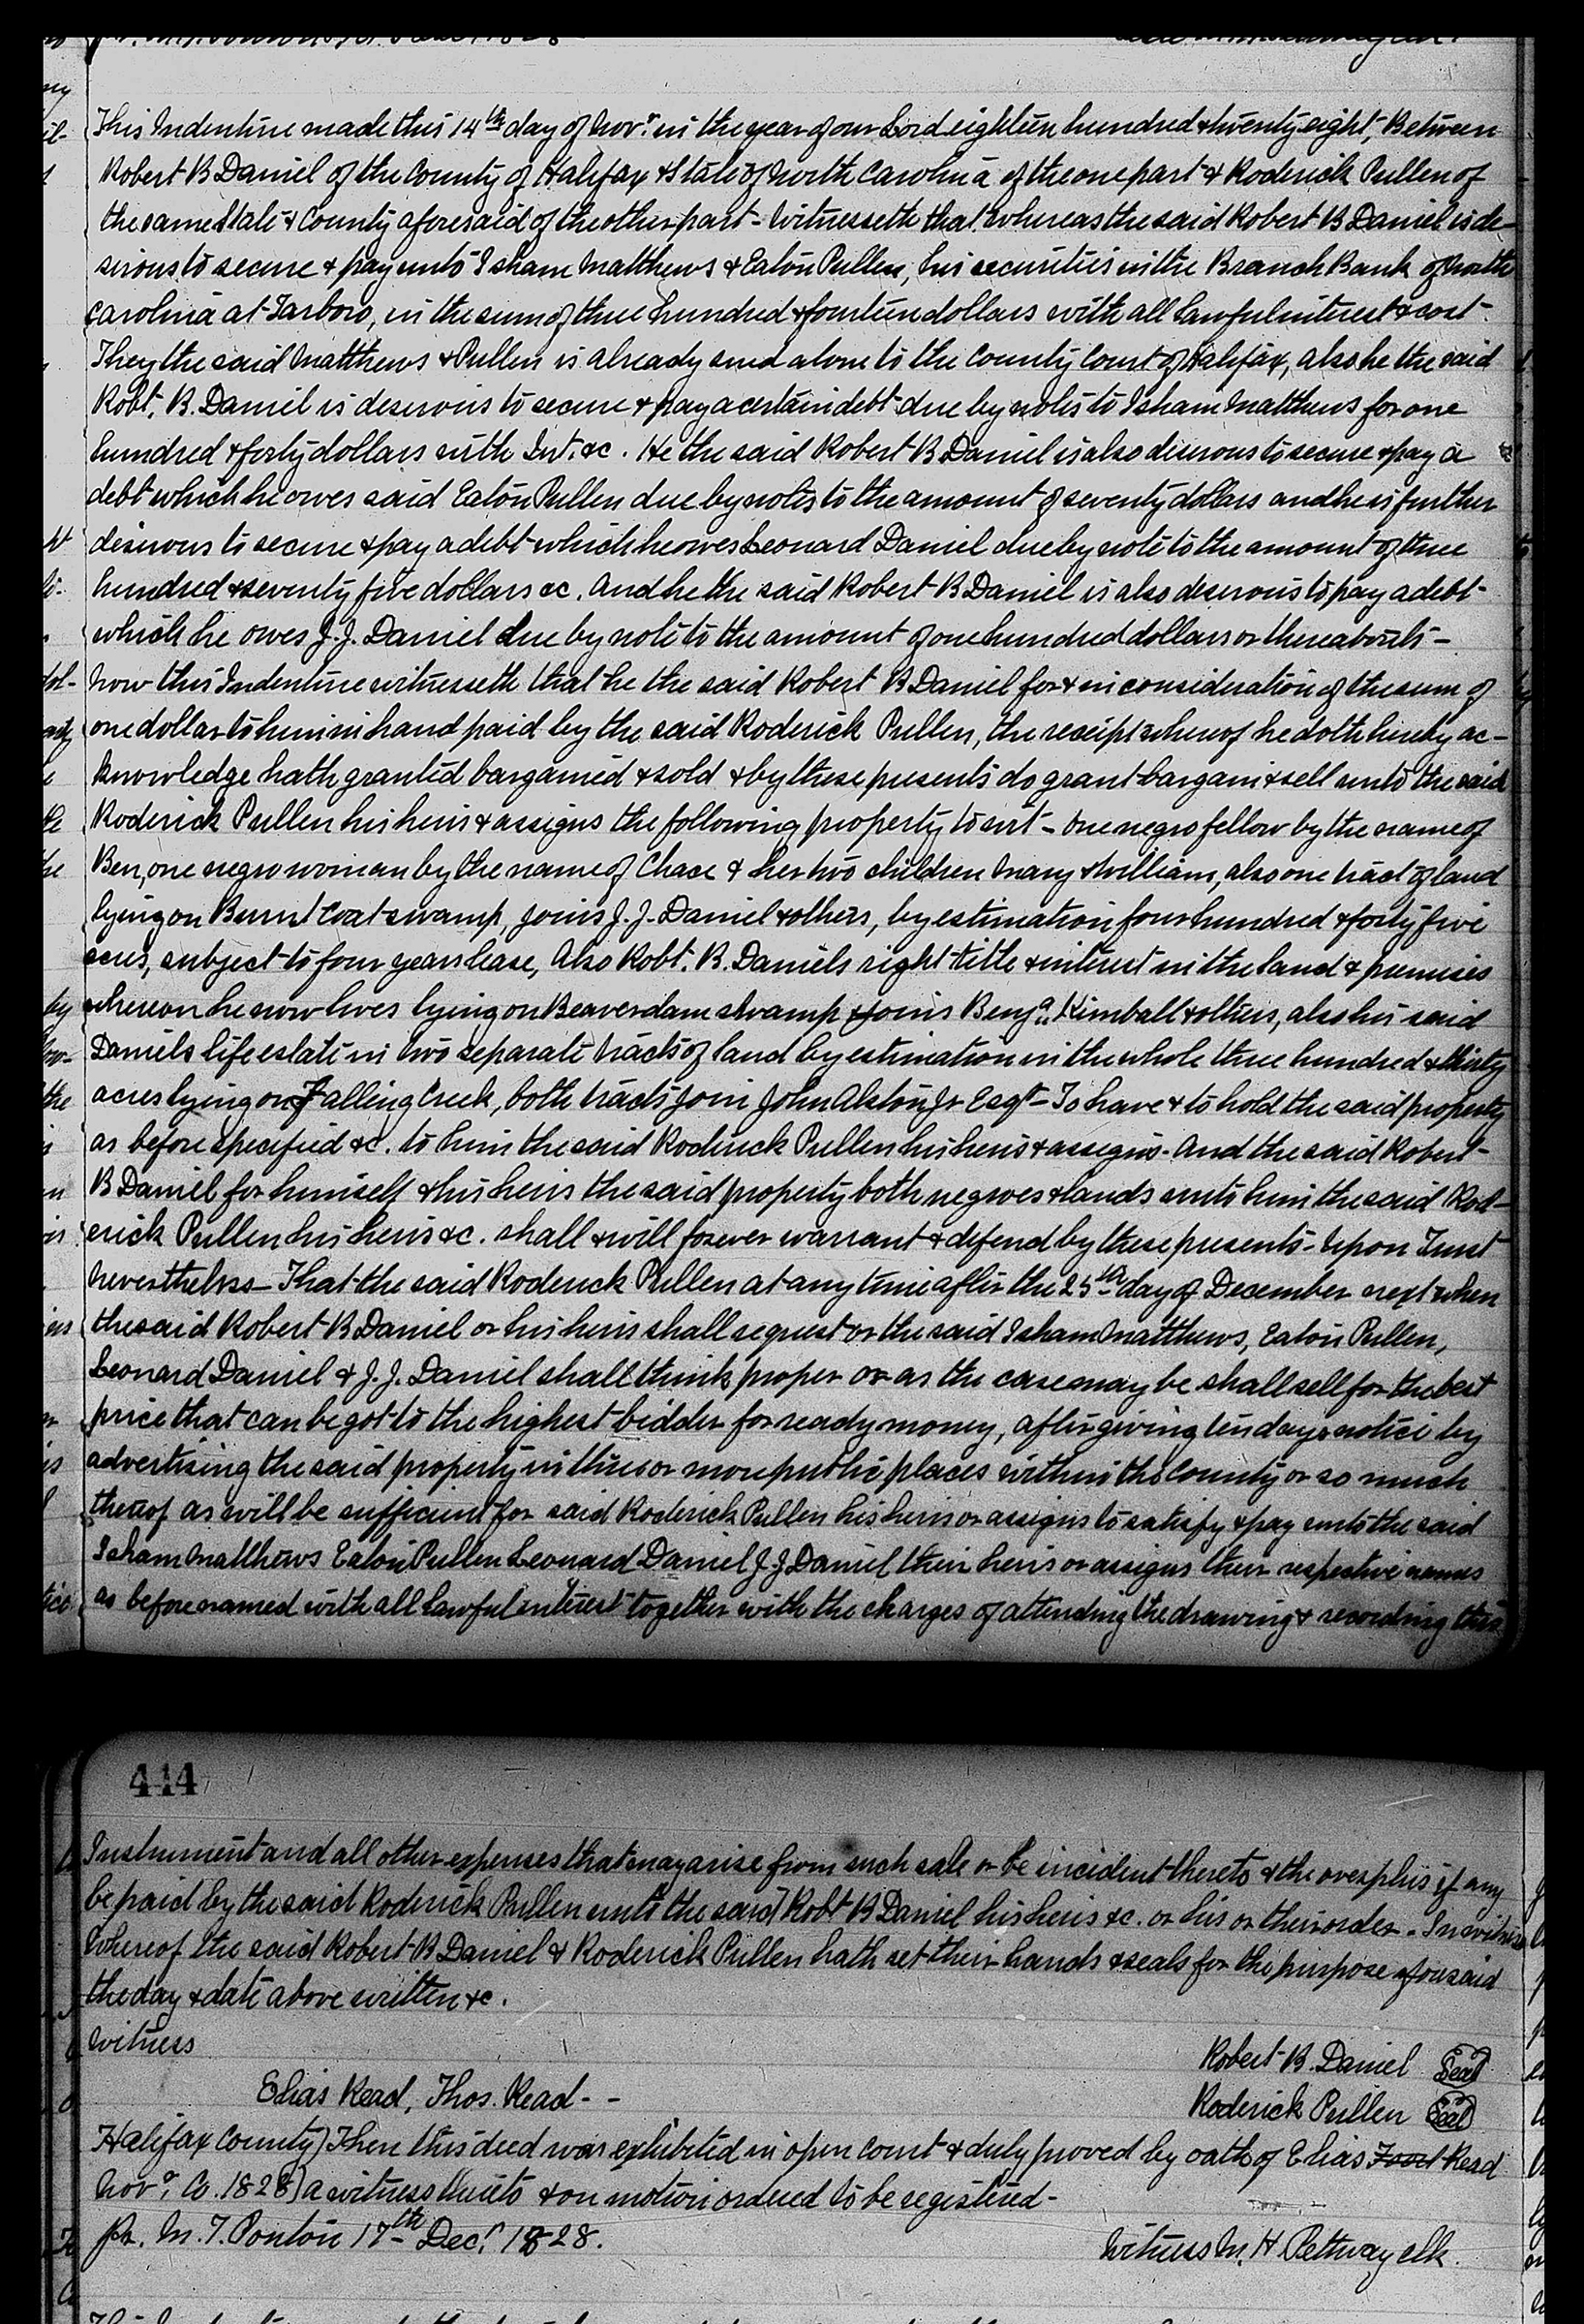 This Indenture made this 14th day of Novr. in the year of our Lord eighteen hundred & twenty eight, Between
Robert B Daniel of the County of Halifax & State of North Carolina of the one part & Roderick Pullen of
the same State & County aforesaid of the other part - Witnesseth that whereas the said Robert B Daniel is de-
sirous to secure & pay unto Isham Matthews & Eaton Pullen, his securities in the Branch Bank of North
Carolina at Tarboro, in the sum of three hundred & fourteen dollars with all lawful interest & cost -
They the said Matthews & Pullen is already sued alone to the County Court of Halifax, also he the said
Robt. B. Daniel is desirous to secure & pay a certain debt due by notes to Isham Matthews for one
hundred & forty dollars with Int. &c. He the said Robert B Daniel is also desirous to secure & pay a
debt which he owes said Eaton Pullen due by notes to the amount of seventy dollars and he is further
desirous to secure & pay a debt which he owes Leonard Daniel due by note to the amount of three
hundred & seventy five dollars &c. And he the said Robert B Daniel is also desirous to pay a debt -
which he owes J. J. Daniel due by note to the amount of one hundred dollars or thereabouts -
Now this Indenture witnesseth that he the said Robert B Daniel for & in consideration of the sum of
one dollar to him in hand paid by the said Roderick Pullen, the receipt whereof he doth hereby ac-
knowledge hath granted bargained & sold & by these presents do grant bargain & sell unto the said
Roderick Pullen his heirs & assigns the following property to wit - One negro fellow by the name of
Ben, one negro woman by the name of Chace & her two children Mary & William, also one tract of land
lying on Burnt Coat swamp, joins J. J. Daniel & others, by estimation four hundred & forty five
acres, subject to four years lease, Also Robt. B. Daniels right title & interest in the land & premises
whereon he now lives lying on Beaverdam swamp & joins Benja. Kimball & others, also his said
Daniels life estate in two separate tracts of land by estimation in the whole three hundred & thirty
acres lying on Falling Creek, both tracts join John Alston Jr Esqr - To have & to hold the said property
as before specified &c. to him the said Roderick Pullen his heirs & assigns. And the said Robert -
B Daniel for himself & his heirs the said property both negroes & lands unto him the said Rod-
erick Pullen his heirs &c. shall & will forever warrant & defend by these presents - Upon Trust
nevertheless - That the said Roderick Pullen at any time after the 25th day of December next when
the said Robert B Daniel or his heirs shall request or the said Isham Matthews, Eaton Pullen,
Leonard Daniel & J. J. Daniel shall think proper or as the case may be shall sell for the best
price that can be got to the highest bidder for ready money, after giving ten days notice by
advertising the said property in three or more public places within the County or so much
thereof as will be sufficient for said Roderick Pullen his heirs or assigns to satisfy & pay unto the said
Isham Matthews Eaton Pullen Leonard Daniel J J Daniel their heirs or assigns their respective names
as before named with all lawful interest together with the charges of attending the drawing & recording this
444
Instrument and all other expenses that may arise from such sale or be incident thereto & the overplus if any
be paid by the said Roderick Pullen unto the said Robt B Daniel his heirs &c. or his or their order - In witness
Whereof the said Robert B Daniel & Roderick Pullen hath set their hands & seals for the purpose aforesaid
the day & date above written &c.
Witness
Robert B. Daniel Seal
Elias Read, Thos. Read - -
Roderick Pullen Seal
Halifax County} Then this deed was exhibited in open Court & duly proved by oath of Elias Read
Novr. Co. 1828} a witness thereto & on motion ordered to be registered -
pr. M. T. Ponton 17th Decr. 1828.
Witness M. H Pettway clk.